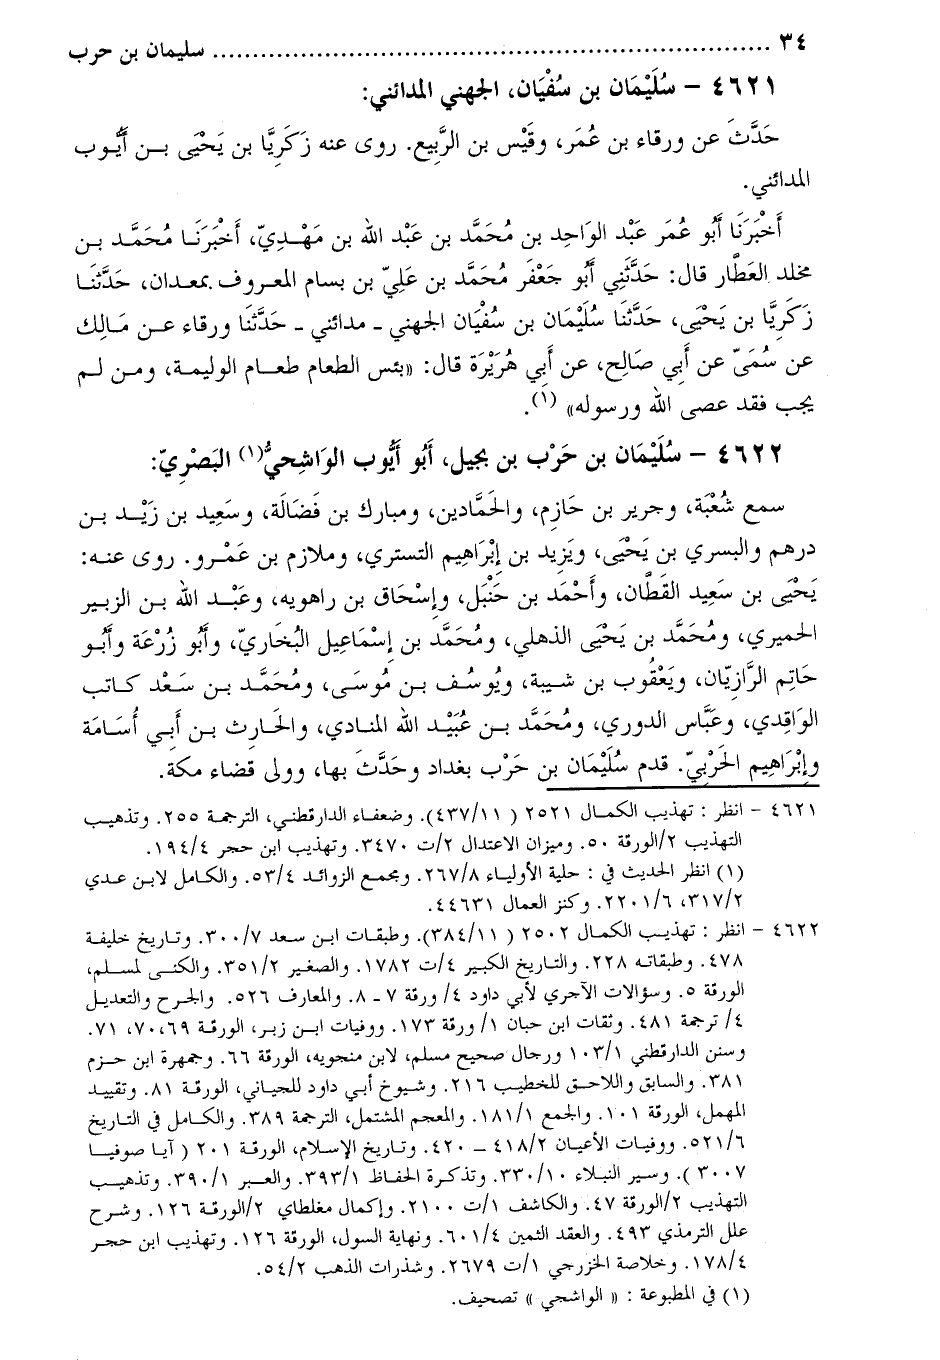 ٣٤ ........................................................................ سليمان بن حرب
٤٦٢١ – سُلَيْمَان بن سُفْيَان، الجهني المدائني:
حَدَّثَ عن ورقاء بن عُمَر، وقَيْس بن الرَّبيع. روى عنه زَكَرِيَّا بن يَحْيَى بــن أَيُّوب
المدائني.
أَخْبَرَنَا أَبُو عُمَر عَبْد الوَاحِد بن مُحَمَّد بن عَبْد الله بن مَهْـدِيّ، أَخْبَرَنَـا مُحَمَّد بـن
مخلد العَطَّار قال: حَدَّثَنِي أَبُو جَعْفَر مُحَمَّد بن عَلِيّ بن بسام المعروف بمعدان، حَدَّثَنَـا
زَكَرِيَّا بن يَحْيَى، حَدَّثَنَا سُلَيْمَان بن سُفْيَان الجهني ـ مدائني ـ حَدَّثَنَا ورقاء عـن مَـالِك
عن سُمَيّ عن أَبِي صَالِح، عن أَبِي هُرَيْرَة قال: «بئس الطعام طعـام الوليمة، ومـن لـم
يجب فقد عصى الله ورسوله» (١).
٤٦٢٢ – سُلَيْمَان بن حَرْب بن بجيل، أَبُو أَيُّوب الوَاشِحيُّ(١) البَصْرِيّ:
سمع شُعْبَة، وجرير بن حَازِم، والحَمَّادين، ومبارك بن فَضَالَة، وسَعِيد بن زَيْـد بـن
درهم والبسري بن يَحْيَى، ويَزِيد بن إِبْرَاهِيم التستري، وملازم بن عَمْـرو. روى عنـه:
يَحْيَى بن سَعِيد القَطَّان، وأَحْمَد بن حَنْبَل، وإِسْحَاق بن راهويه، وعَبْـد الله بـن الزبير
الحميري، ومُحَمَّد بن يَحْيَى الذهلي، ومُحَمَّد بن إِسْمَاعِيل البُخَاريّ، وأَبُو زُرْعَة وأَبُـو
حَاتِم الرَّازِيَّان، ويَعْقُوب بن شيبة، ويُوسُـف بـن مُوسَـى، ومُحَمَّـد بـن سَـعْد كـاتب
الوَاقِدي، وعَبَّاس الدوري، ومُحَمَّد بـن عُبَيْـد الله المنـادي، والحَـارِث بـن أَبـي أُسَـامَة
وإِبْرَاهِيم الحَرْبيّ. قدم سُلَيْمَان بن حَرْب بغداد وحَدَّث بها، وولى قضاء مكة.
٤٦٢١ – انظر : تهذيب الكمال ٢٥٢١ (٤٣٧/١١). وضعفـاء الدارقطني، الترجمـة ٢٥٥. وتذهيـب
التهذيب ٢/الورقة ٥٠. وميزان الاعتدال ٢/ت ٣٤٧٠. وتهذيب ابن حجر ١٩٤/٤.
(١) انظر الحديث في : حلية الأولياء ٢٦٧/٨. ومجمع الزوائد ٥٣/٤. والكامل لابن عدي
٣١٧/٢، ٢٢٠١/٦. وكنز العمال ٤٤٦٣١.
٤٦٢٢ – انظر : تهذيـب الكمال ٢٥٠٢ (٣٨٤/١١). وطبقـات ابـن سـعد ٣٠٠/٧. وتـاريخ خليفـة
٤٧٨. وطبقاتـه ٢٢٨. والتـاريخ الكبير ٤/ت ١٧٨٢. والصغير ٣٥١/٢. والكنـى لمسلـم،
الورقة ٥. وسؤالات الآجري لأبي داود ٤/ ورقة ٧ ـ ٨. والمعارف ٥٢٦. والجـرح والتعديـل
٤/ ترجمة ٤٨١. وثقات ابن حبان ١/ ورقة ١٧٣. ووفيات ابـن زبـر، الورقـة ٦٩،٧٠، ٧١.
وسنن الدارقطني ١٠٣/١ ورجال صحيح مسلم، لابن منجويه، الورقة ٦٦. وجمهرة ابن حـزم
٣٨١. والسابق واللاحـق للخطيـب ٢١٦. وشـيوخ أبـي داود للجيـاني، الورقـة ٨١. وتقييـد
المهمل، الورقة ١٠١. والجمع ١٨١/١. والمعجم المشتمل، الترجمة ٣٨٩. والكـامل في التـاريخ
٥٢١/٦. ووفيات الأعيان ٤١٨/٢ ــ ٤٢٠. وتـاريخ الإسـلام، الورقـة ٢٠١ ( آيـا صوفيـا
٣٠٠٧ ). وسير النبلاء ٣٣٠/١٠. وتذكـرة الحفـاظ ٣٩٣/١. والعبر ٣٩٠/١. وتذهيـب
التهذيب ٢/الورقة ٤٧. والكاشف ١/ت ٢١٠٠. وإكمال مغلطاي ٢/الورقـة ١٢٦. وشـرح
علل الترمذي ٤٩٣. والعقد الثمين ٦٠١/٤. ونهاية السول، الورقة ١٢٦. وتهذيب ابن حجـر
١٧٨/٤. وخلاصة الخزرجي ١/ت ٢٦٧٩. وشذرات الذهب ٥٤/٢.
(١) في المطبوعة : « الواشجي » تصحيف.